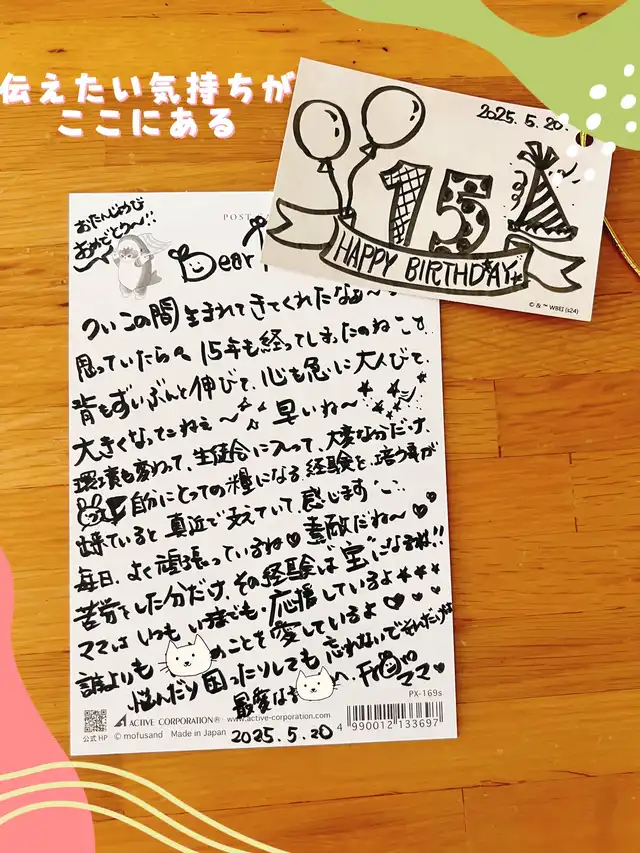 伝えたい気持ちが
ここにある
2025.5.20.
15
HAPPY BIRTHDAY
© & ™ WBEI (s24)
おたんじょうび
おめでとう〜!!
POST
Dear
ついこの間 生まれてきてくれたなぁ〜
思っていたら 15年も経ってしまったのね
背もずいぶんと伸びて、心も急に大人びて、
大きくなったねぇ〜 早いね〜
環境も変わって、生徒会に入って、大変な分だけ、
自分にとっての糧になる経験を、培う事が
出来ていると 真近で支えていて、感じます
毎日、よく頑張っているね♥ 素敵だね〜♡♥
苦労をした分だけ、その経験は"宝"になるね!!
ママは いつも いつまでも、応援しているよ★★★
誰よりも のことを愛しているよ♥
悩んだり 困ったりしても 忘れないで それだけは
最愛なる へ. From ママ♥
PX-169s
ACTIVE CORPORATION® www.active-corporation.com
公式HP © mofusand Made in Japan
4 990012 133697
2025.5.20